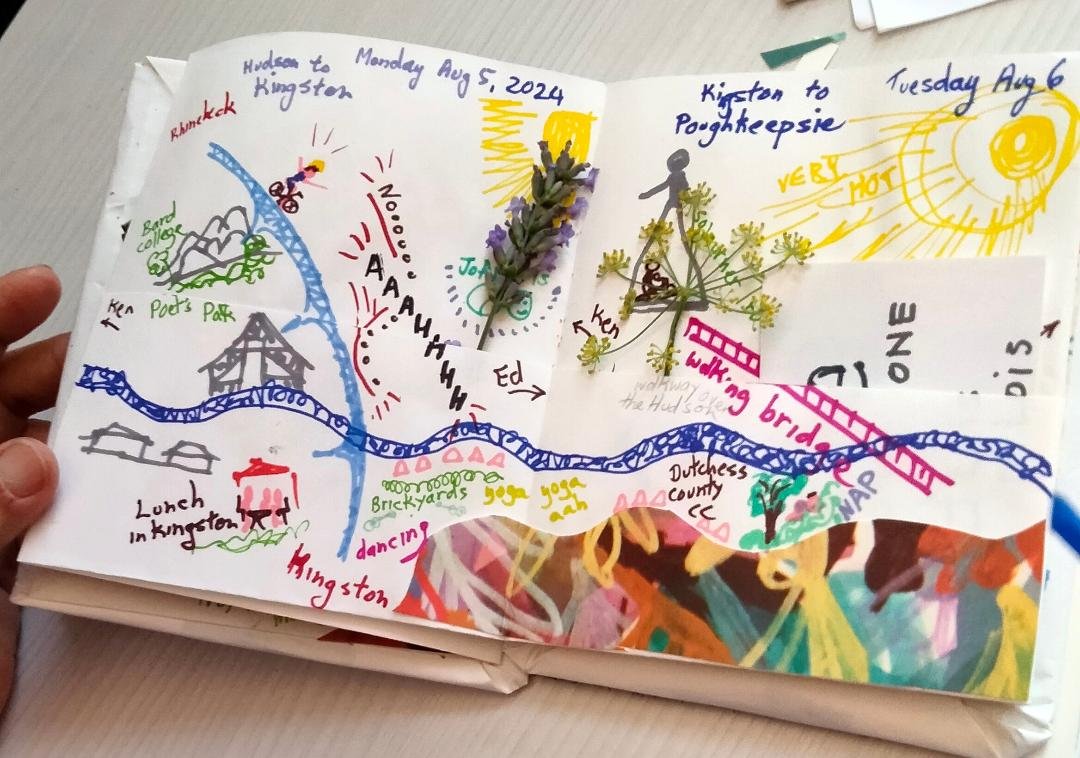 Hudson to
Kingston
Monday Aug 5, 2024
Rhinebeck
Bard
college
Poet's Path
Ken
AAAAHHHH
Ed
Lunch
in Kingston
Brickyards
yoga
dancing
Kingston
Kingston to
Poughkeepsie
Tuesday Aug 6
VERY HOT
Ken
ONE
DIS
walking bridge
walkway over
the Hudson
yoga
aah
Dutchess
county
CC
NAP